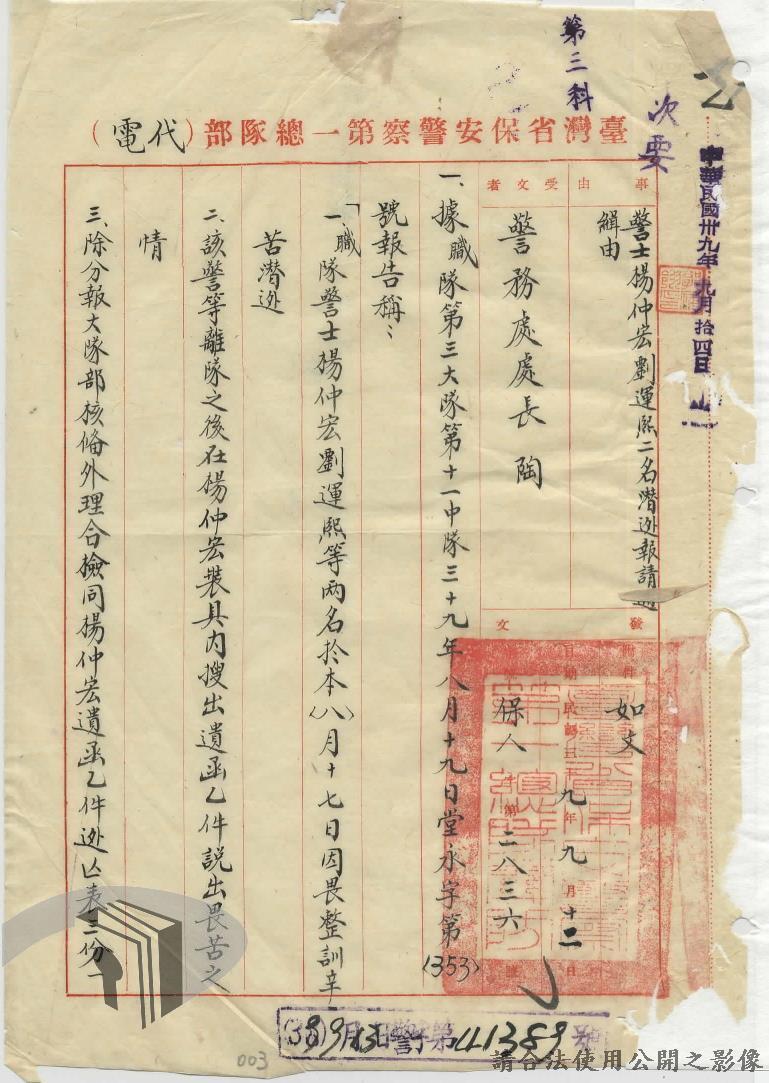 第三科
次要
中華民國卅九年九月拾四日
臺灣省保安警察第一總隊部（代電）
事由
警士楊仲宏劉運熙二名潛逃報請通
緝由
受文者
警務處處長陶
發文
附件
如文
日期
九年九月十二日
保人字第二八三六號
一、據職隊第三大隊第十一中隊三十九年八月十九日堂永字第(353)
號報告稱：
「一、職隊警士楊仲宏劉運熙等兩名於本(八)月十七日因畏整訓辛
苦潛逃
二、該警等離隊之後在楊仲宏裝具內搜出遺函乙件説出畏苦之
情
三、除分報大隊部核俻外理合檢同楊仲宏遺函乙件逃亡表三份一
(39)9月13日警 第41389號
003
請合法使用公開之影像